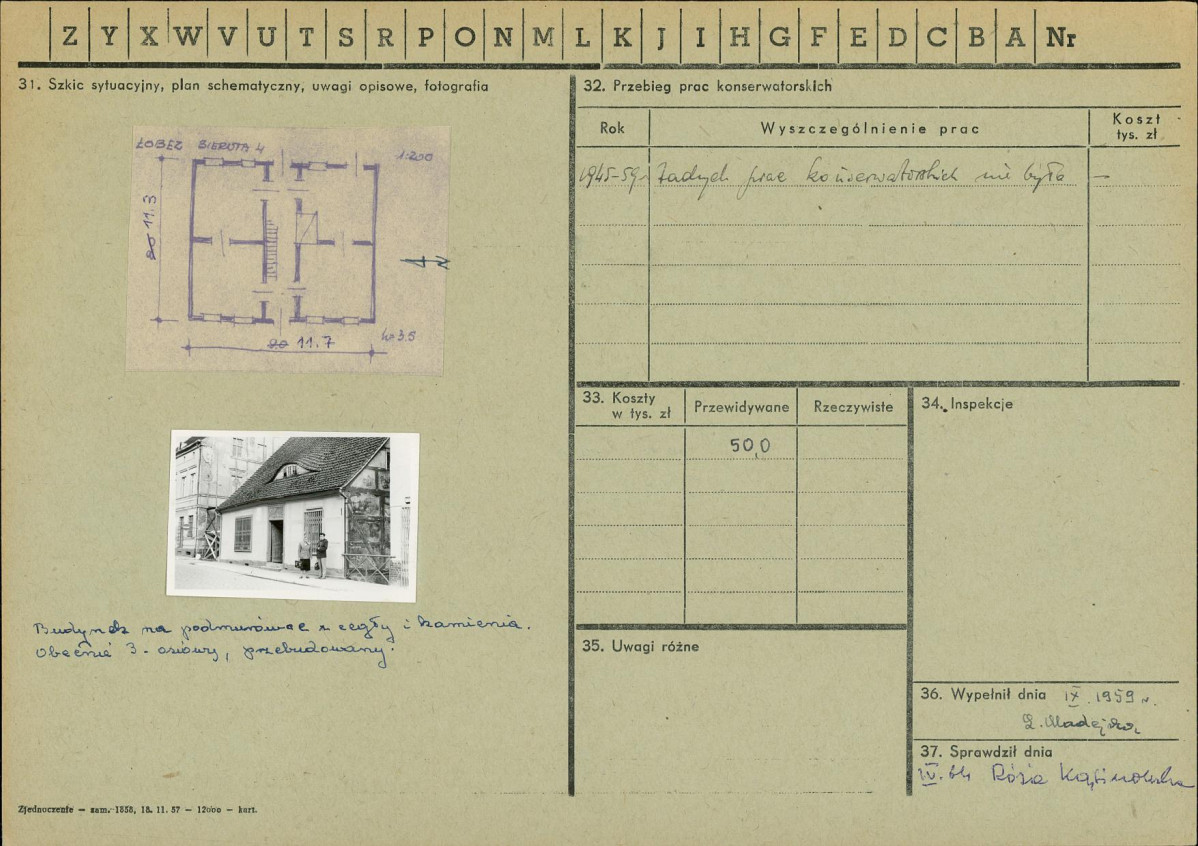 Z Y X W V U T S R P O N M L K J I H G F E D C B A Nr
31. Szkic sytuacyjny, plan schematyczny, uwagi opisowe, fotografia
ŁOBEZ BIERUTA 4
1:200
11.3
11.7
h=3.5
N
Budynek na podmurówce z cegły i kamienia.
Obecnie 3-osiowy, przebudowany.
Zjednoczenie — zam. 1555, 18. 11. 57 — 12000 — kart.
32. Przebieg prac konserwatorskich
Rok Wyszczególnienie prac Koszt tys. zł
1945-59 r. Żadnych prac konserwatorskich nie było —
33. Koszty w tys. zł Przewidywane Rzeczywiste
50,0
34. Inspekcje
35. Uwagi różne
36. Wypełnił dnia IX 1959 r.
37. Sprawdził dnia
IV. Róża Kąsinowska